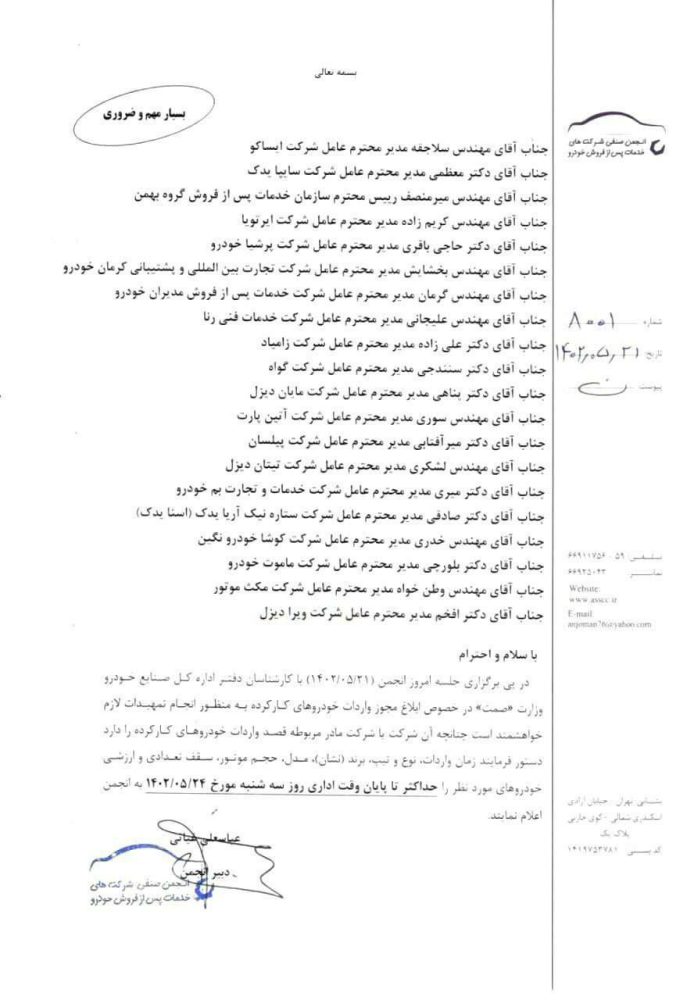 بسمه تعالی
بسیار مهم و ضروری
انجمن صنفی شرکت های
خدمات پس از فروش خودرو
جناب آقای مهندس سلاجقه مدیر محترم عامل شرکت ایساکو
جناب آقای دکتر معظمی مدیر محترم عامل شرکت سایپا یدک
جناب آقای مهندس میرمنصف رییس محترم سازمان خدمات پس از فروش گروه بهمن
جناب آقای مهندس کریم زاده مدیر محترم عامل شرکت ایرتویا
جناب آقای دکتر حاجی باقری مدیر محترم عامل شرکت پرشیا خودرو
جناب آقای مهندس بخشایش مدیر محترم عامل شرکت تجارت بین المللی و پشتیبانی کرمان خودرو
جناب آقای مهندس گرمان مدیر محترم عامل شرکت خدمات پس از فروش مدیران خودرو
جناب آقای مهندس علیجانی مدیر محترم عامل شرکت خدمات فنی رنا
جناب آقای دکتر علی زاده مدیر محترم عامل شرکت زامیاد
جناب آقای دکتر سنندجی مدیر محترم عامل شرکت گواه
جناب آقای دکتر پناهی مدیر محترم عامل شرکت مایان دیزل
جناب آقای مهندس سوری مدیر محترم عامل شرکت آتین پارت
جناب آقای دکتر میرآفتابی مدیر محترم عامل شرکت پیلسان
جناب آقای مهندس لشکری مدیر محترم عامل شرکت تیتان دیزل
جناب آقای دکتر میری مدیر محترم عامل شرکت خدمات و تجارت بم خودرو
جناب آقای دکتر صادقی مدیر محترم عامل شرکت ستاره نیک آریا یدک (اسنا یدک)
جناب آقای مهندس خدری مدیر محترم عامل شرکت کوشا خودرو نگین
جناب آقای دکتر بلورچی مدیر محترم عامل شرکت ماموت خودرو
جناب آقای مهندس وطن خواه مدیر محترم عامل شرکت مکث موتور
جناب آقای دکتر افخم مدیر محترم عامل شرکت ویرا دیزل
با سلام و احترام
در پی برگزاری جلسه امروز انجمن (۱۴۰۲/۰۵/۲۱) با کارشناسان دفتر اداره کل صنایع خودرو
وزارت «صمت» در خصوص ابلاغ مجوز واردات خودروهای کارکرده به منظور انجام تمهیدات لازم
خواهشمند است چنانچه آن شرکت یا شرکت مادر مربوطه قصد واردات خودروهای کارکرده را دارد
دستور فرمایند زمان واردات، نوع و تیپ، برند (نشان)، مدل، حجم موتور، سقف تعدادی و ارزشی
خودروهای مورد نظر را حداکثر تا پایان وقت اداری روز سه شنبه مورخ ۱۴۰۲/۰۵/۲۴ به انجمن
اعلام نمایند.
عباسعلی
دبیر انجمن
انجمن صنفی شرکت های
خدمات پس از فروش خودرو
شماره ۸۰۰۱
تاریخ ۱۴۰۲,۰۵,۲۱
پیوست
تلفن: ۵۹ - ۶۶۹۱۱۷۵۶
نمابر ۶۶۹۲۵۰۴۳
Website:
www.asscc.ir
E-mail:
anjoman76@yahoo.com
نشانی: تهران - خیابان آزادی
اسکندری شمالی - کوی
پلاک یک
کد پستی ۱۴۱۹۷۵۳۷۸۱